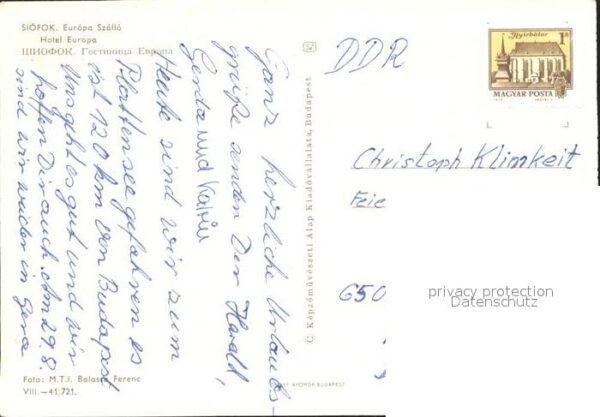 SIÓFOK. Európa Szálló
Hotel Europa
ШИОФОК. Гостиница Европа
Ganz herzliche Urlaubs
grüße senden Dir Harald,
Gerda und Katrin
Heute sind wir zum
Plattensee gefahren es
ist 120 km von Budapest
Uns geht es gut und wir
hoffen Dir auch. Am 29.8.
sind wir wieder in Gera
Foto: M.T.I. Balassa Ferenc
VIII.—41/721.
C Képzőművészeti Alap Kiadóvállalata, Budapest
NYOMDA BUDAPEST
DDR
Nyírbátor
1Ft
MAGYAR POSTA
Christoph Klimkeit
Feie
650
privacy protection
Datenschutz